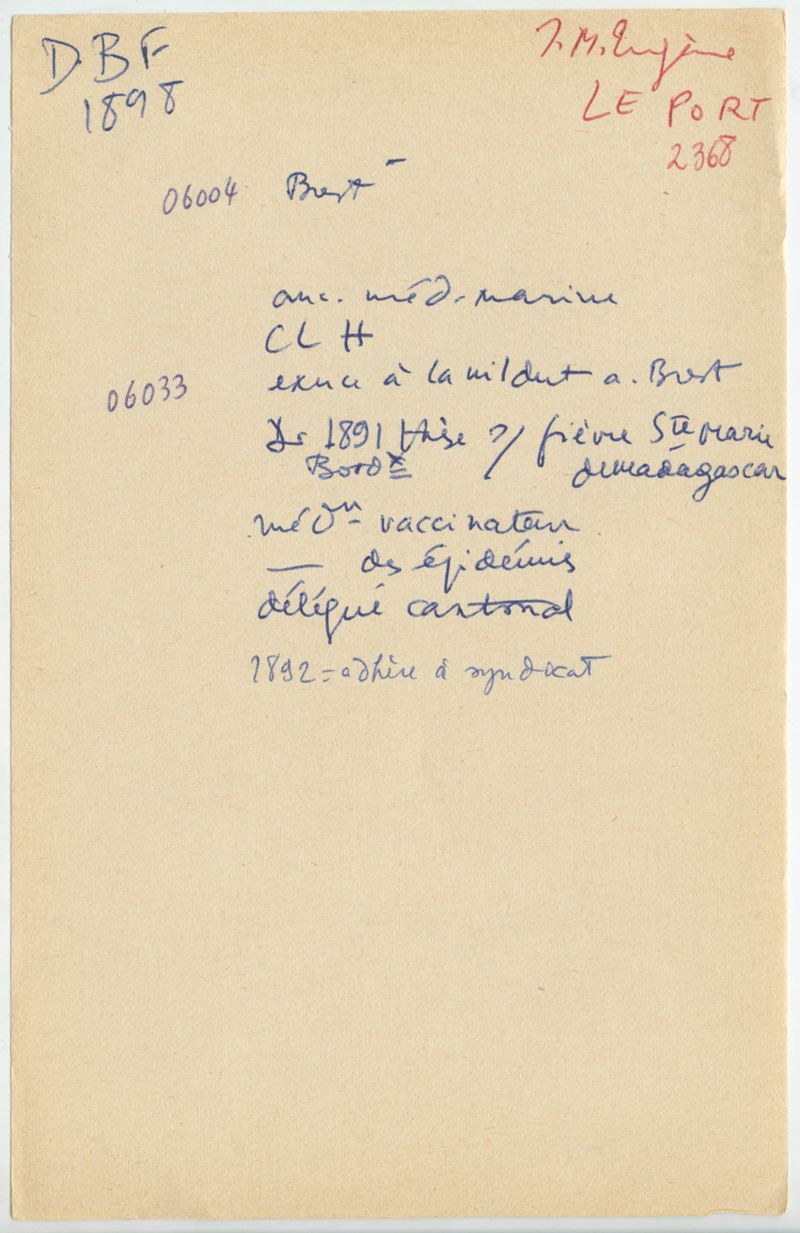 DBF
1898
J. M. Eugène
LE PORT
2368
06004 Brest -
anc. méd. marine
CLH
06033
exerce à Lanildut a. Brest
Dr 1891 thèse s/ fièvre Ste Marie
Bordx de Madagascar
médn vaccinateur
— des épidémies
délégué cantonal
1892 = adhère à syndicat